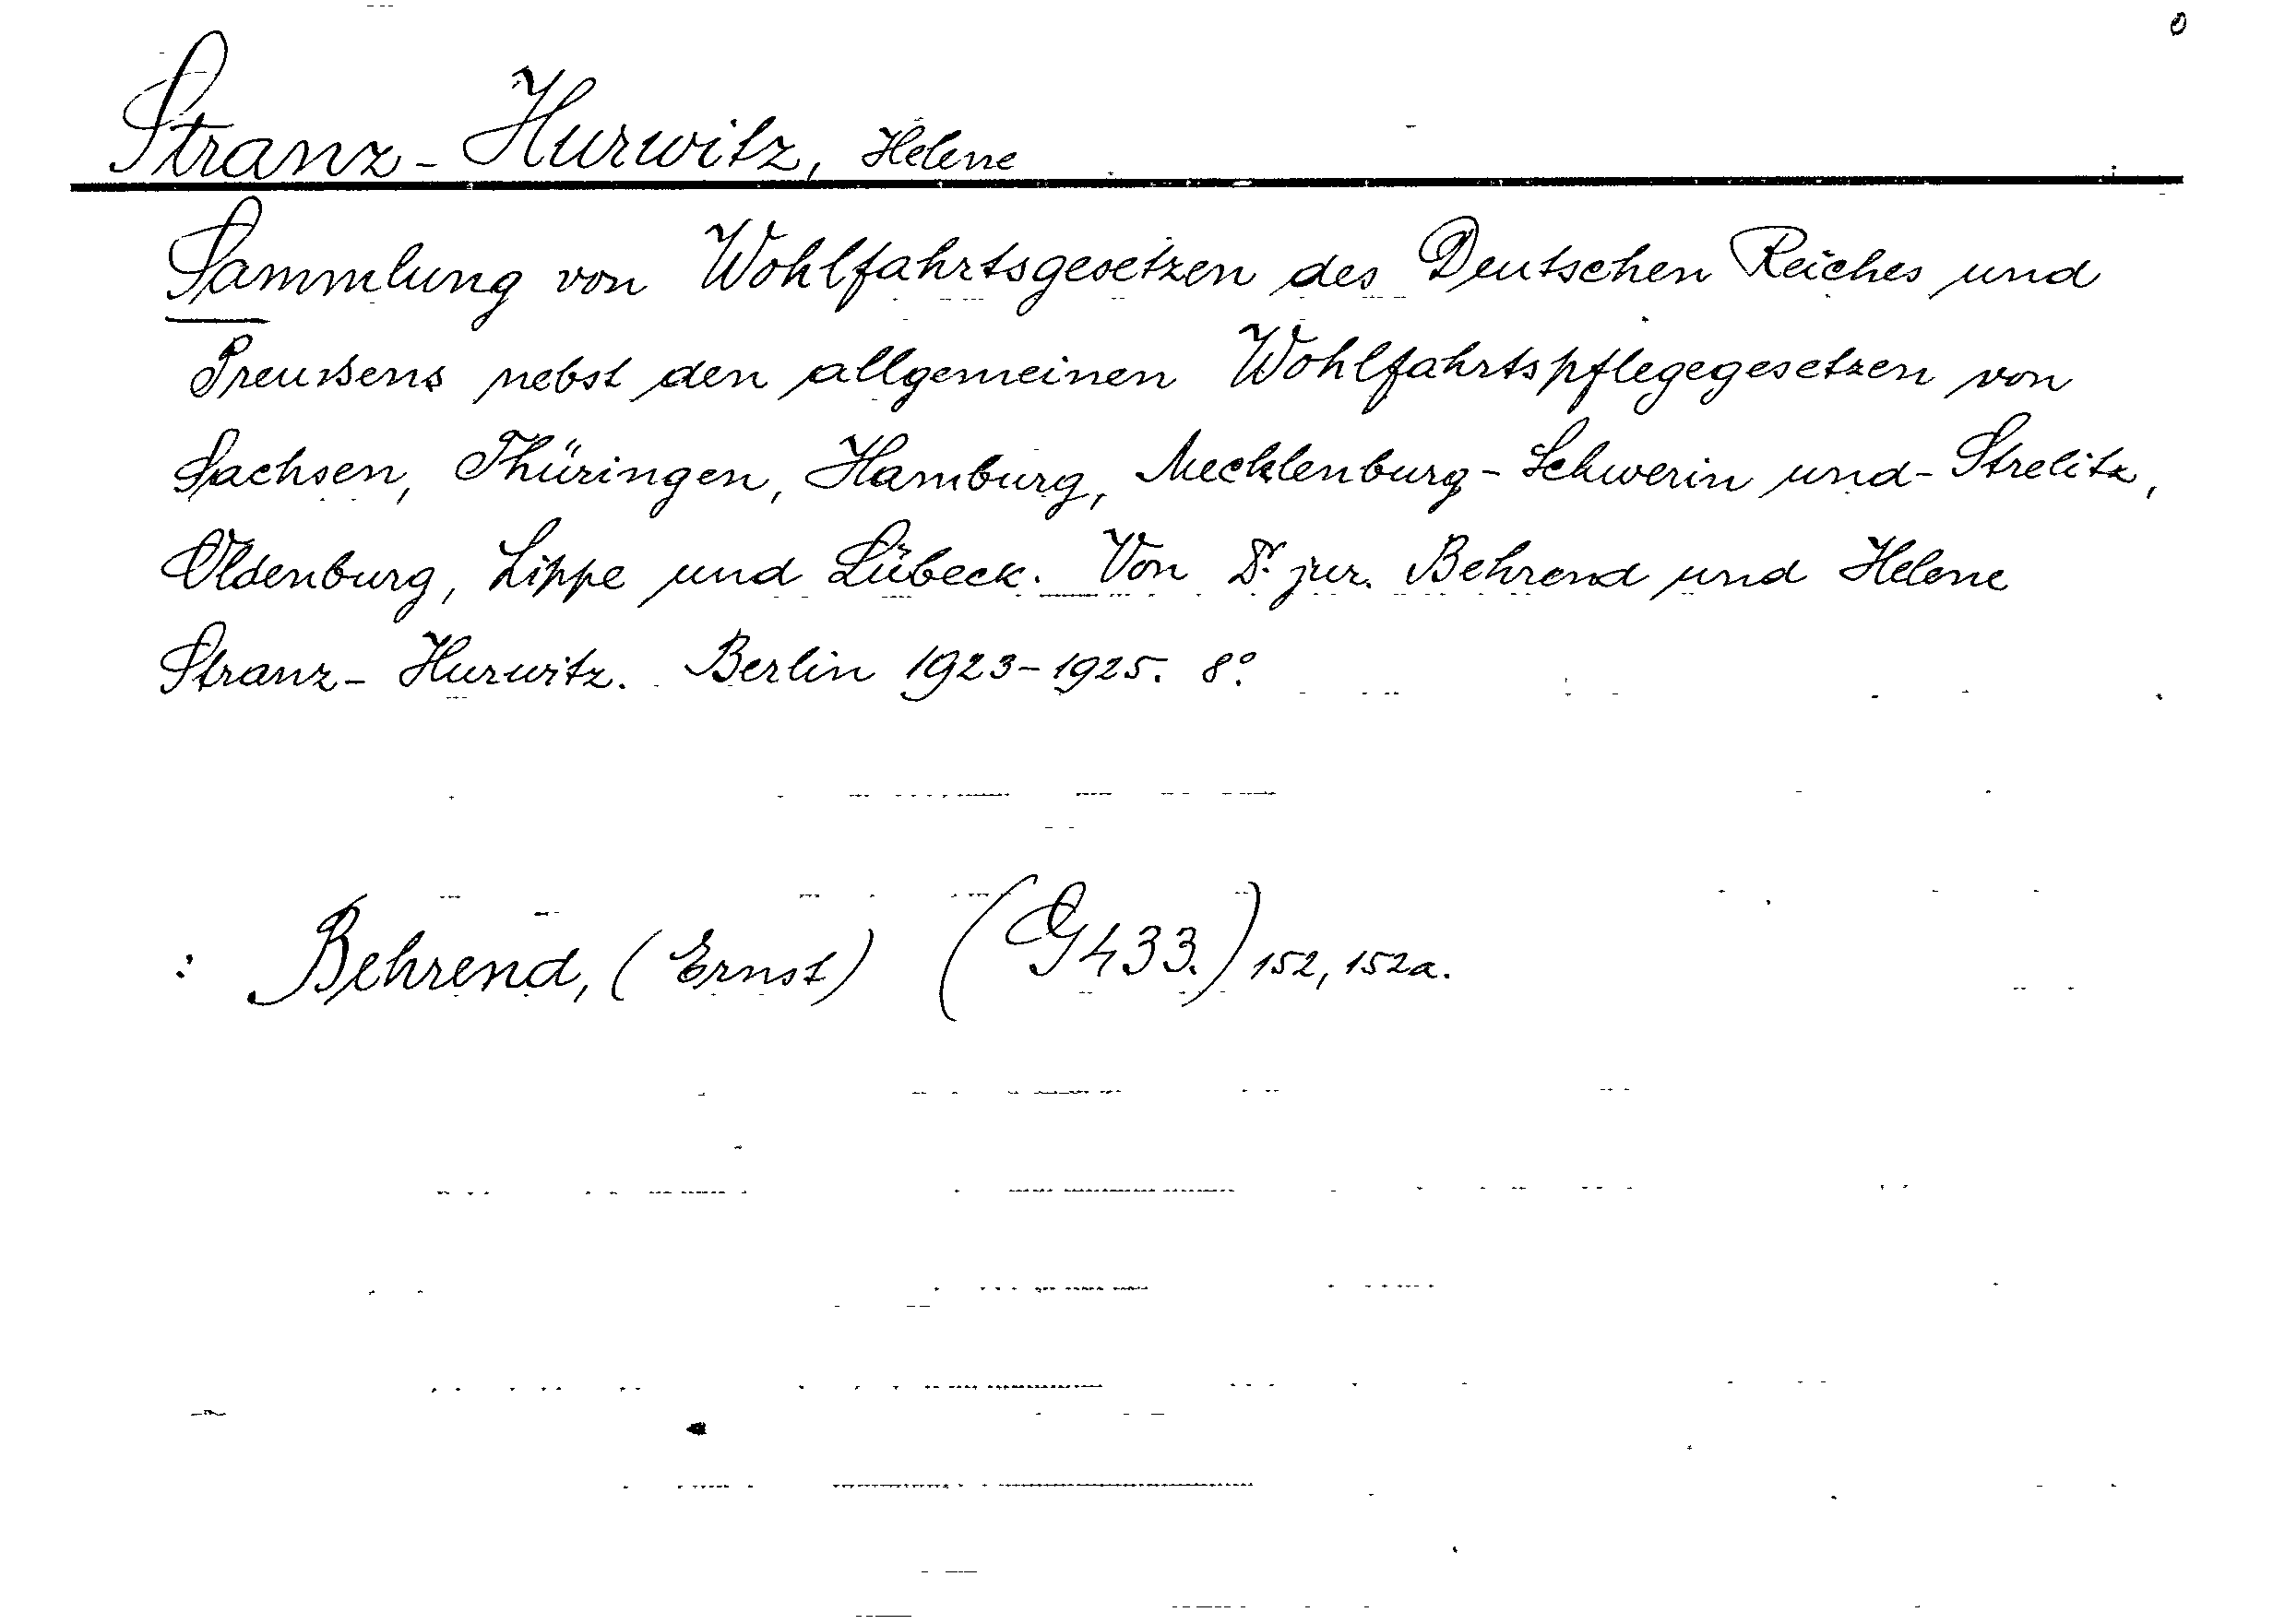 Stranz-Hurwitz, Helene
Sammlung von Wohlfahrtsgesetzen des Deutschen Reiches und
Preußens nebst den allgemeinen Wohlfahrtspflegegesetzen von
Sachsen, Thüringen, Hamburg, Mecklenburg-Schwerin und-Strelitz,
Oldenburg, Lippe und Lübeck. Von Dr. jur. Behrend und Helene
Stranz-Hurwitz. Berlin 1923-1925. 8°.
: Behrend, (Ernst) (G433.) 152, 152a.